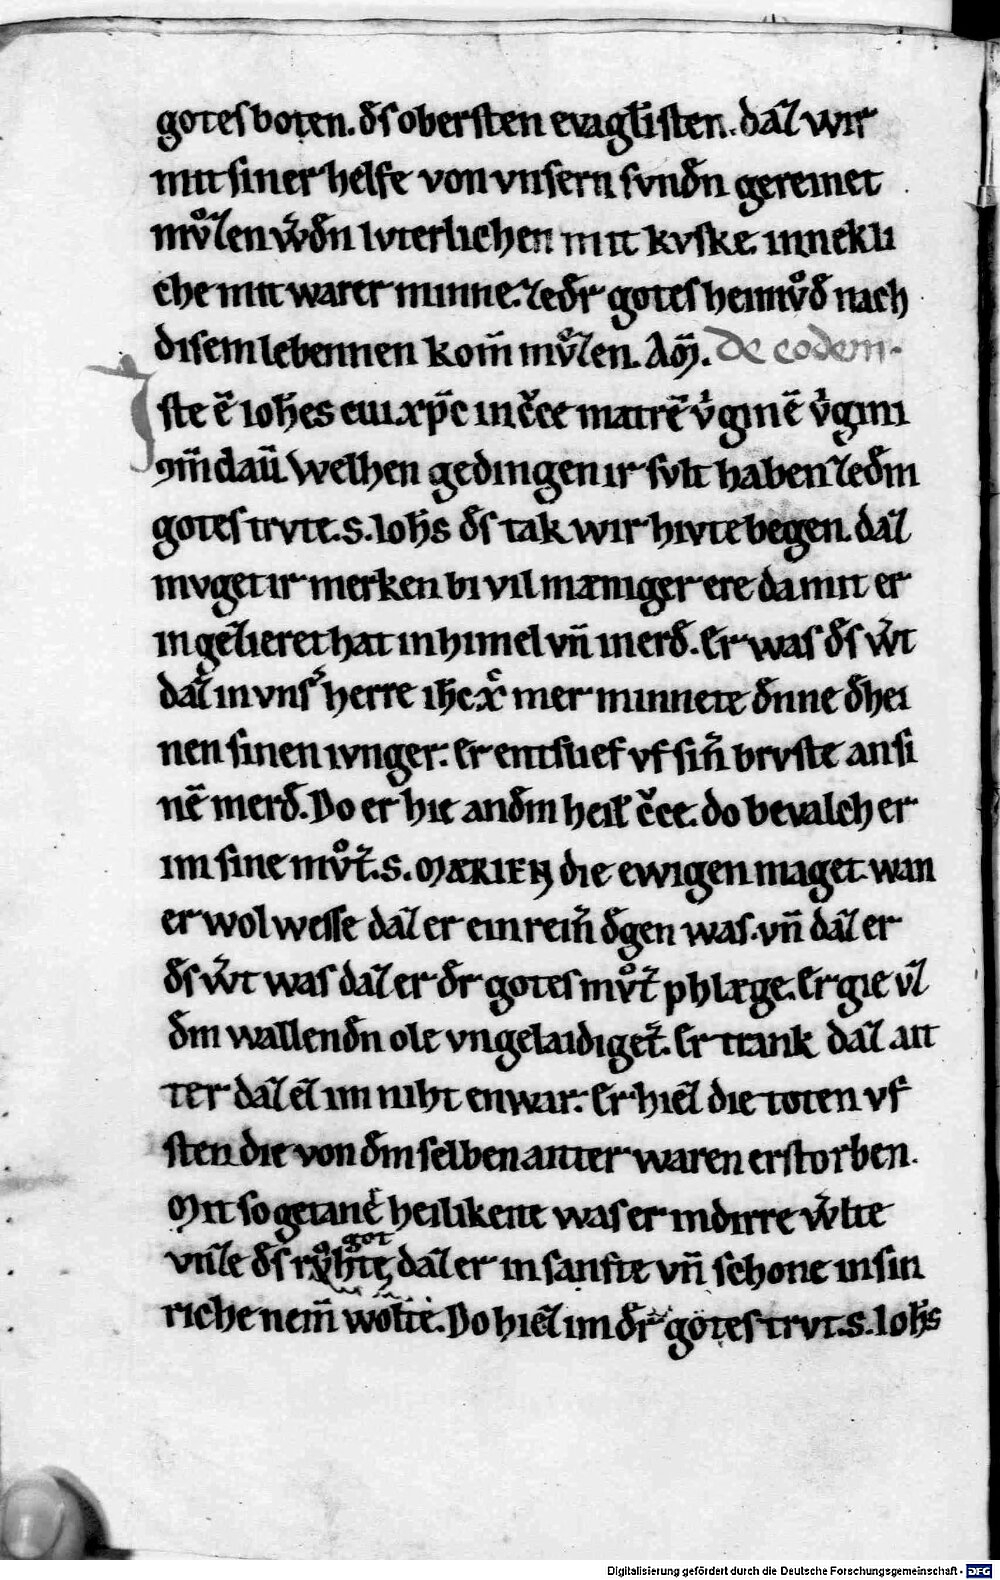 gotes boten. ds̄ obersten evaglisten. daz wir
mit siner helfe von vnsern svndn̄ gereinet
mvͦzen w̄dn̄ lvterlichen mit kvske innekli
che mit warer minne. ze dr̄ gotes heimvͦd̄ nach
disem lebennen kom̄ mvͦzen. Am̄. De eodem.
Iste ē ioh̄es cui xp̄c in c̄ce matrē v̄ginē v̄gini
ꝯm̄dau̅ Welhen gedingen ir svlt haben ze dm̄
gotes trvte. s. Ioh̄s ds̄ tak wir hivte begen. daz
mvget ir merken bi vil mæniger ere da mit er
in gezieret hat in himel vn̄ in erd̄. Er was ds̄ w̄t
daz in vns̄ herre ih̄c x̄ mer minnete dn̄ne dh̄ei
nen sinen ivnger. Er entslief vf sin̄ brvste an si
nē merd̄. Do er hie an dm̄ heil̄ c̄ce. do bevalch er
im sine mvͦt̄. s. MARIEN die ewigen maget. wan
er wol wesse daz er ein rein̄ dḡen was. vn̄ daz er
ds̄ w̄t was daz er dr̄ gotes mvͦt̄ phlæge. Er gie vz
dm̄ wallendn̄ ole vngelaidiget̄. Er trank daz ait
ter daz ez im niht enwar. Er hiez die toten vf
sten die von dm̄ selben aitter waren erstorben.
Mit so getanē heilikeite was er in dirre w̄lte
vnze ds̄ rvͦhte got daz er in sanfte vn̄ schone in sin
riche nem̄ wolte. Do hiez im dr̄ gotes trvt. s. Ioh̄s
Digitalisierung gefördert durch die Deutsche Forschungsgemeinschaft - DFG